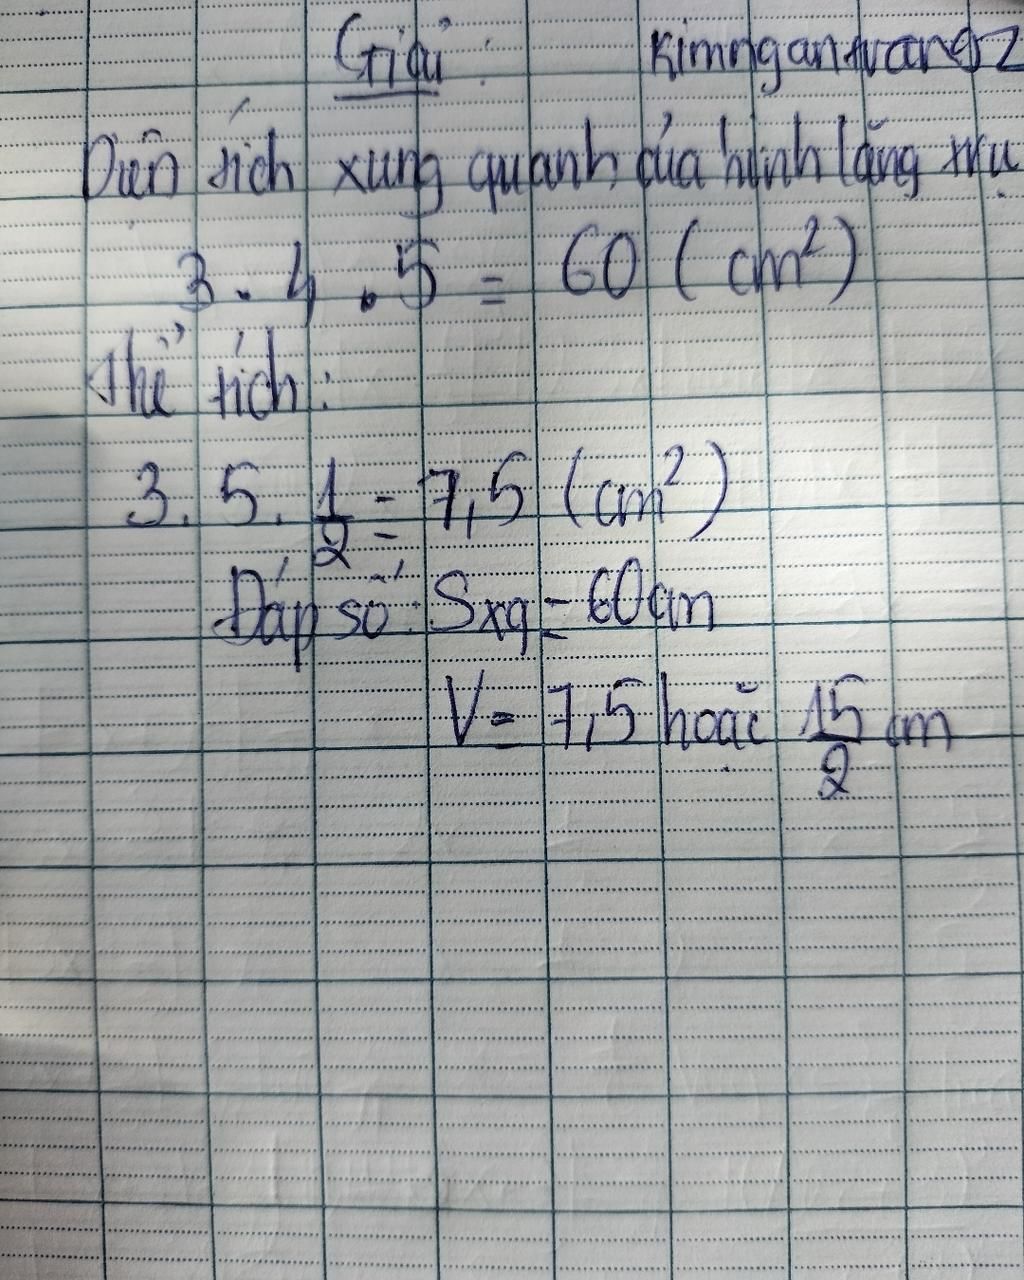 Giải : Kimngantrang2
Diện tích xung quanh của hình lăng trụ
3 . 4 . 5 = 60 ( cm²)
Thể tích :
3 . 5 . 1/2 = 7,5 (cm²)
Đáp số : Sxq = 60cm
V = 7,5 hoặc 15/2 cm